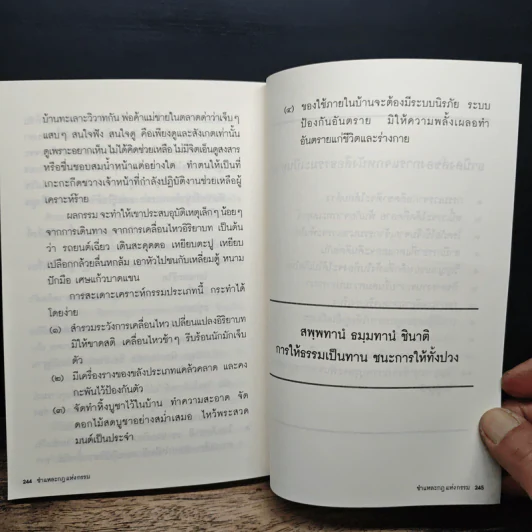 บ้านทะเลาะวิวาทกัน พ่อค้าแม่ขายในตลาดด่าว่าเจ็บๆ
แสบๆ สนใจฟัง สนใจดู คือเพียงดูและสังเกตเท่านั้น
ดูเพราะอยากเห็น ไม่ได้คิดช่วยเหลือ ไม่มีจิตเอ็นดูสงสาร
หรือชื่นชอบสมน้ำหน้าแต่อย่างใด ทำตนให้เป็นที่
เกะกะกีดขวางเจ้าหน้าที่กำลังปฏิบัติงานช่วยเหลือผู้
เคราะห์ร้าย
ผลกรรม จะทำให้เขาประสบอุบัติเหตุเล็กๆ น้อยๆ
จากการเดินทาง จากการเคลื่อนไหวอิริยาบท เป็นต้น
ว่า รถยนต์เฉี่ยว เดินสะดุดตอ เหยียบตะปู เหยียบ
เปลือกกล้วยลื่นหกล้ม เอาหัวไปชนกับเหลี่ยมตู้ หนาม
ปักมือ เศษแก้วบาดแขน
การสะเดาะเคราะห์กรรมประเภทนี้ กระทำได้
โดยง่าย
(๑) สำรวมระวังการเคลื่อนไหว เปลี่ยนแปลงอิริยาบท
มิให้ขาดสติ เคลื่อนไหวช้าๆ รีบร้อนนักมักเจ็บ
ตัว
(๒) มีเครื่องรางของขลังประเภทแคล้วคลาด และคง
กะพันไว้ป้องกันตัว
(๓) จัดทำหิ้งบูชาไว้ในบ้าน ทำความสะอาด จัด
ดอกไม้สดบูชาอย่างสม่ำเสมอ ไหว้พระสวด
มนต์เป็นประจำ
244 ชำแหละกฎแห่งกรรม
(๔) ของใช้ภายในบ้านจะต้องมีระบบนิรภัย ระบบ
ป้องกันอันตราย มิให้ความพลั้งเผลอทำ
อันตรายแก่ชีวิตและร่างกาย
สพฺพทานํ ธมฺมทานํ ชินาติ
การให้ธรรมเป็นทาน ชนะการให้ทั้งปวง
ชำแหละกฎแห่งกรรม 245